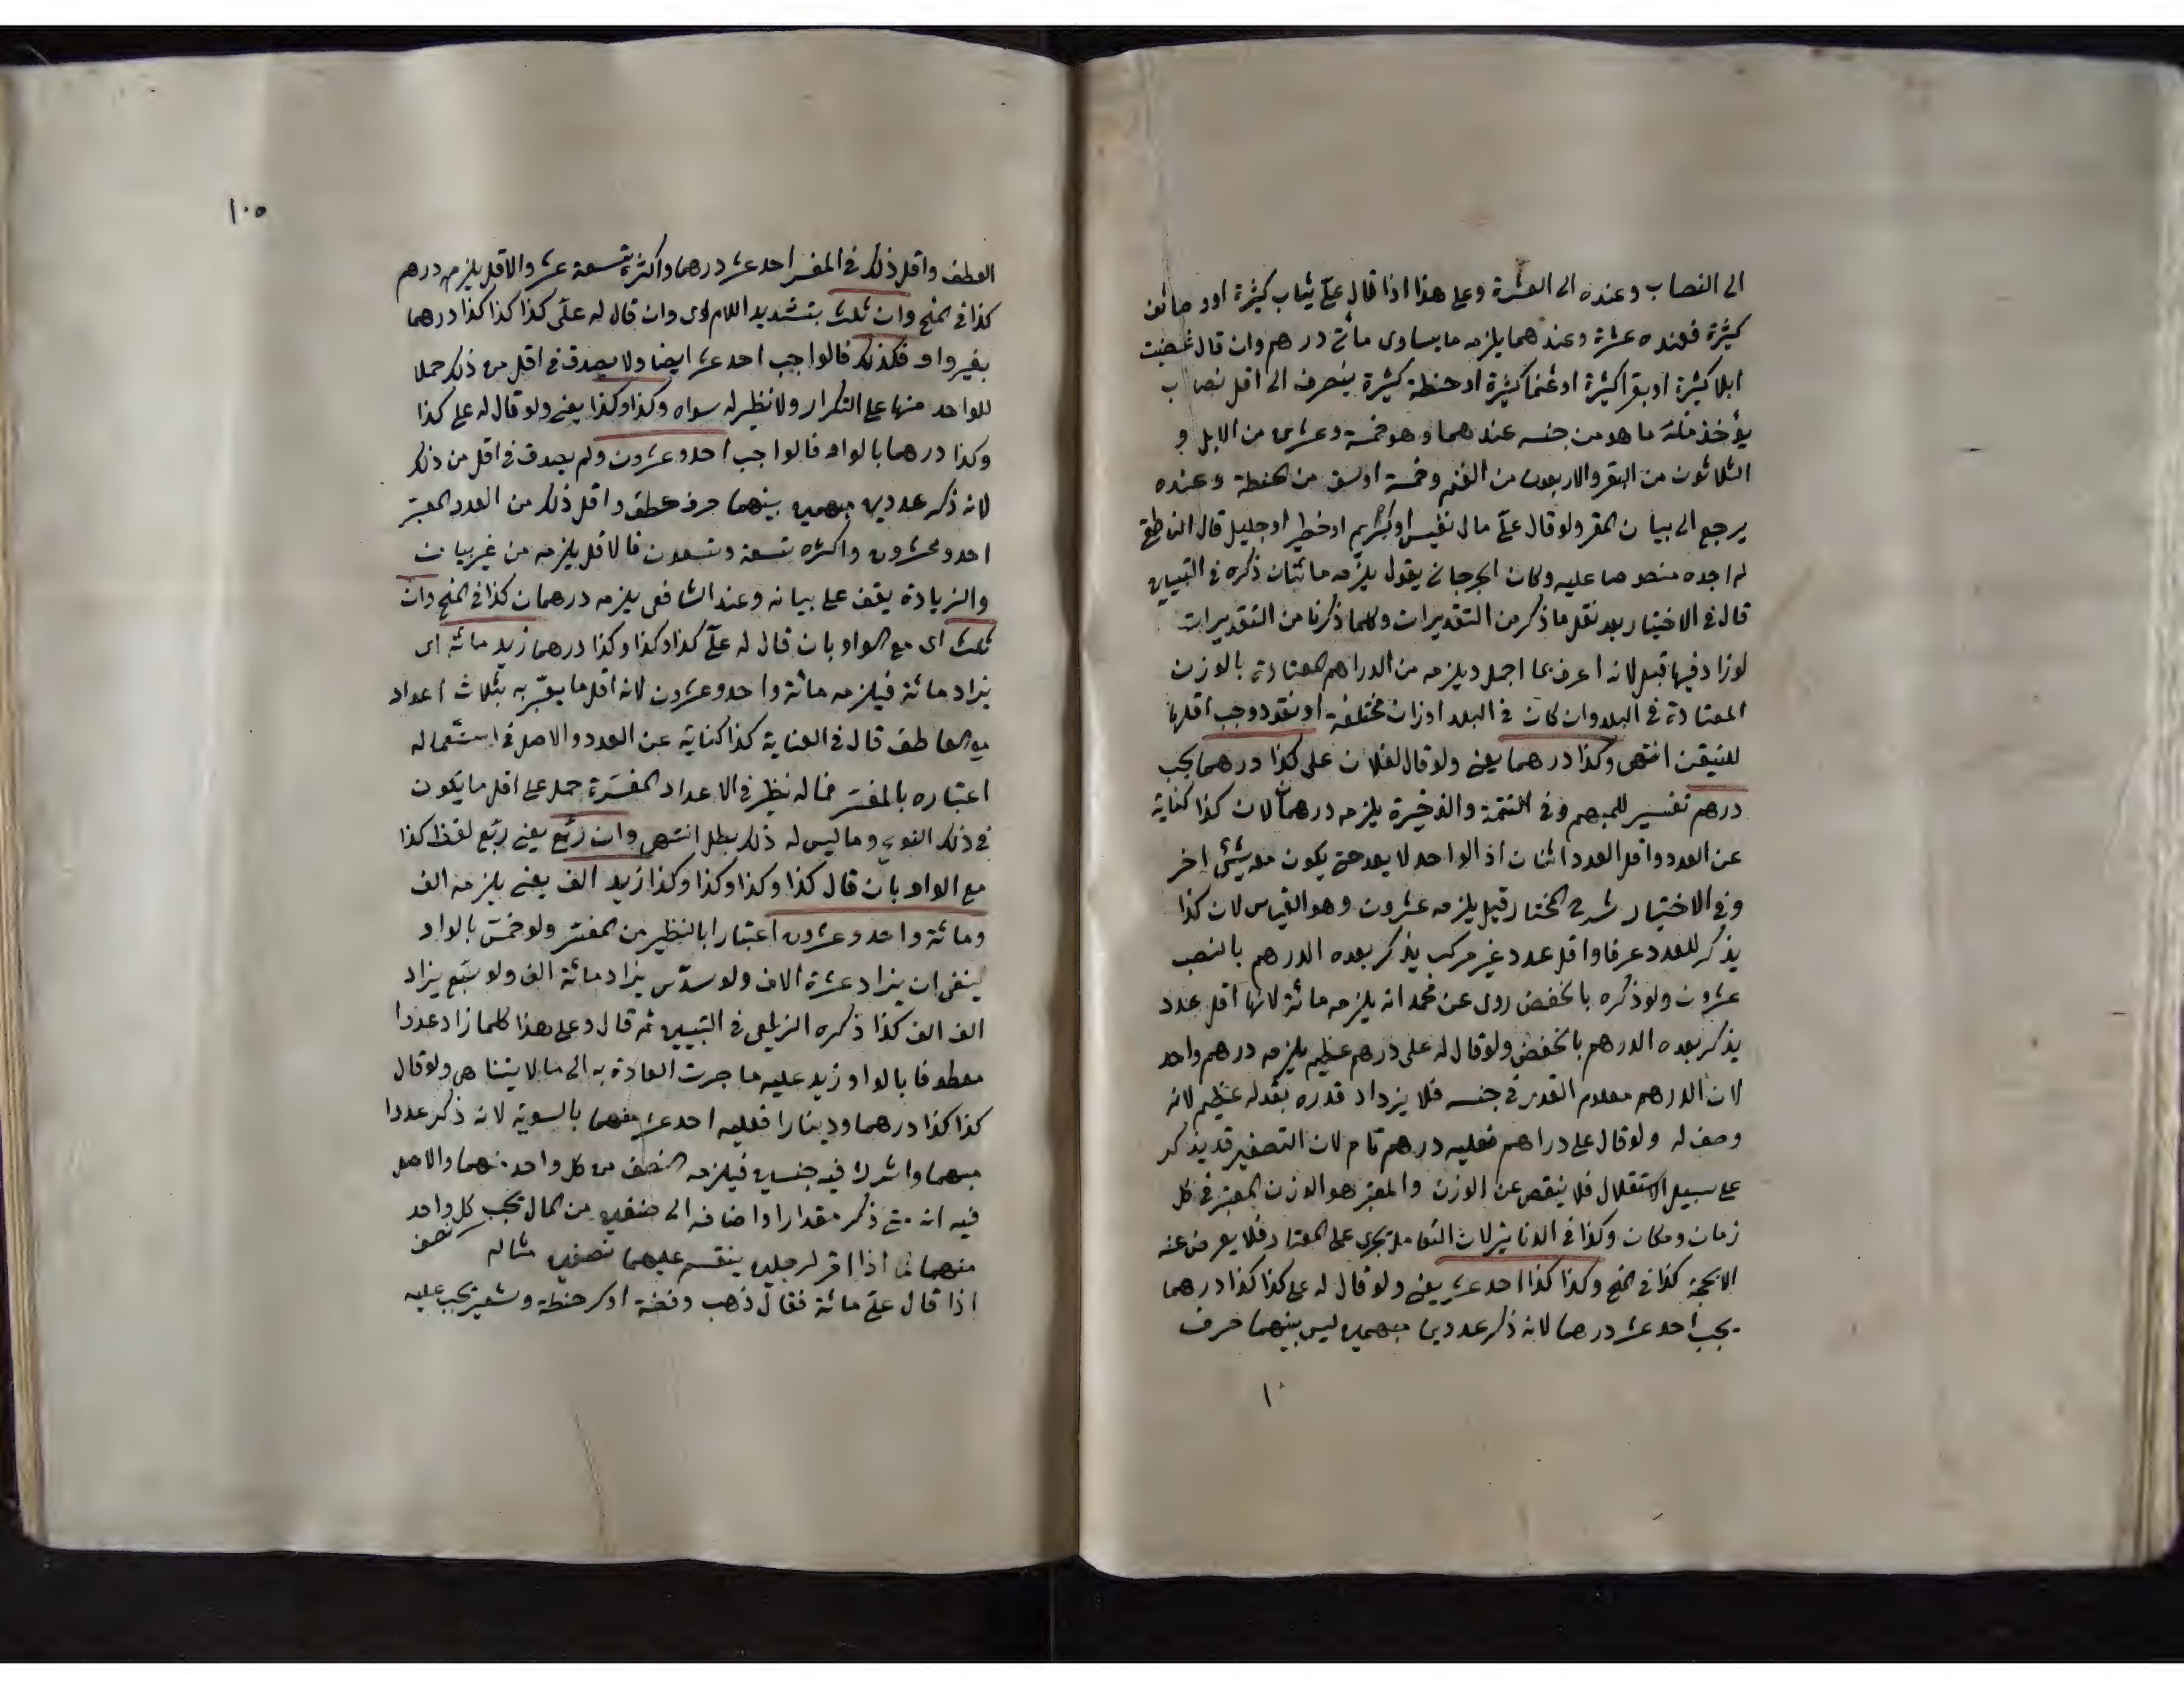 الى النصاب وعنده الى العشرة وعلى هذا اذا قال علّي ثياب كثيرة او وصائف
كثيرة فعنده عشرة وعندهما يلزمه ما يساوى مائتى درهم وان قال غصبت
ابلا كثيرة او بقرا كثيرة او غنما كثيرة او حنطة كثيرة ينصرف الى اقل نصاب
يؤخذ منه ما هو من جنسه عندهما وهو خمسة وعشرين من الابل و
الثلاثون من البقر والاربعون من الغنم وخمسة اوسق من الحنطة وعنده
يرجع الى بيان المقر ولو قال علّي مال نفيس او كريم او خطير او جليل قال الناطفى
لم اجده منصوصا عليه وكان الجرجانى يقول يلزمه مائتان ذكره فى التبيين
قال فى الاختيار بعد نقل ما ذكر من التقديرات وكلما ذكرنا من التقديرات
لو زاد فيها قبل لانه اعرف بما اجمل ويلزمه من الدراهم المعتادة بالوزن
المعتادة فى البلد وان كان فى البلد اوزان مختلفة او نقود وجب اقلها
للتيقن انتهى وكذا درهما يعنى ولو قال لفلان على كذا درهما يجب
درهم تفسير للمبهم وفى التتمة والذخيرة يلزمه درهمان لان كذا كناية
عن العدد واقل العدد اثنان اذ الواحد لا يعد حتى يكون معه شئ اخر
وفى الاختيار شرح المختار قيل يلزمه عشرون وهو القياس لان كذا
يذكر للعدد عرفا واقل عدد غير مركب يذكر بعده الدرهم بالنصب
عشرون ولو ذكره بالخفض روى عن محمد انه يلزمه مائة لانها اقل عدد
يذكر بعده الدرهم بالخفض ولو قال له على درهم عظيم يلزمه درهم واحد
لان الدرهم معلوم القدر فى جنسه فلا يزداد قدره بقوله عظيم لانه
وصف له ولو قال على دراهم فعليه درهم تام لان التصغير قد يذكر
على سبيل الاستقلال فلا ينقص عن الوزن والمعتبر هو الوزن المعتبر فى كل
زمان ومكان وكذا فى الدنانير لان التعامل يجرى على المعتاد فلا يعرض عنه
الا بحجة كذا فى المنح وكذا كذا احد عشر يعنى ولو قال له على كذا كذا درهما
يجب احد عشر درهما لانه ذكر عددين مبهمين ليس بينهما حرف
١٠
١٠٥
العطف واقل ذلك فى المفسر احد عشر درهما واكثره تسعة عشر والاقل يلزمه درهم
كذا فى المنح وان ثلث بتشديد اللام اى وان قال له علّى كذا كذا كذا درهما
بغير واو فكذلك فالواجب احد عشر ايضا ولا يصدق فى اقل من ذلك حملا
للواحد منها على التكرار ولا نظير له سواه وكذا وكذا يعنى ولو قال له على كذا
وكذا درهما بالواو فالواجب احد وعشرون ولم يصدق فى اقل من ذلك
لانه ذكر عددين مبهمين بينهما حرف عطف واقل ذلك من العدد المفسر
احد وعشرون واكثره تسعة وتسعون فالاقل يلزمه من غير بيان
والزيادة يقف على بيانه وعند الشافعى يلزمه درهمان كذا فى المنح وان
ثلث اى مع الواو بان قال له علّي كذا وكذا وكذا درهما زيد مائة اى
يزاد مائة فيلزمه مائة واحد وعشرون لانه اقل ما يعبّر به بثلاث اعداد
مع العاطف قال فى العناية كذا كناية عن العدد والاصل فى استعماله
اعتباره بالمفسر فما له نظير فى الاعداد المفسرة حمل على اقل ما يكون
فى ذلك النوع وما ليس له ذلك بطل انتهى وان ربّع يعنى ربّع لفظ كذا
مع الواو بان قال كذا وكذا وكذا وكذا زيد الف يعنى يلزمه الف
ومائة واحد وعشرون اعتبارا بالنظير من المفسر ولو خمّس بالواو
ينبغى ان يزاد عشرة الاف ولو سدّس يزاد مائة الف ولو سبّع يزاد
الف الف كذا ذكره الزيلعى فى التبيين ثم قال وعلى هذا كلما زاد عددا
معطوفا بالواو زيد عليه ما جرت العادة به الى ما لا يتناهى ولو قال
كذا كذا درهما ودينارا فعليه احد عشر منهما بالسوية لانه ذكر عددا
مبهما واشرك فيه جنسين فيلزمه النصف من كل واحد منهما والاصل
فيه انه متى ذكر مقدارا واضافه الى صنفين من المال يجب كل واحد
منهما نصف كما اذا اقر لرجلين ينقسم عليهما نصفين مثاله
اذا قال علّي مائة فقال ذهب وفضة او كر حنطة وشعير يجب عليه